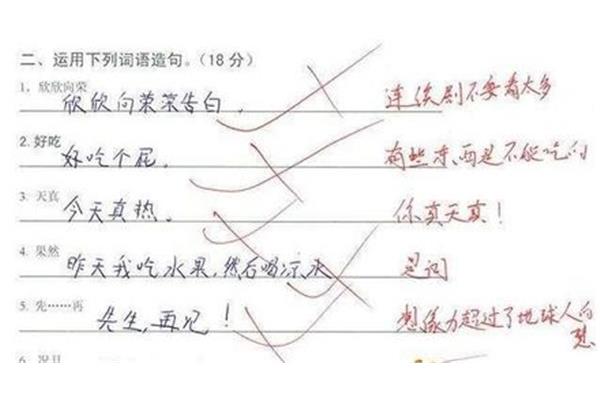 二、运用下列词语造句。（18分）
1，欣欣向荣
欣欣向荣荣告白，
连续剧不要看太多
2.好吃
好吃个屁，
有些东西是不能吃的
3. 天真
今天真热。
你真天真！
4. 果然
昨天我吃水果，然后喝凉水
是词
5. 先……再
先生，再见！
想像力超过了地球人的
想
6. 况且